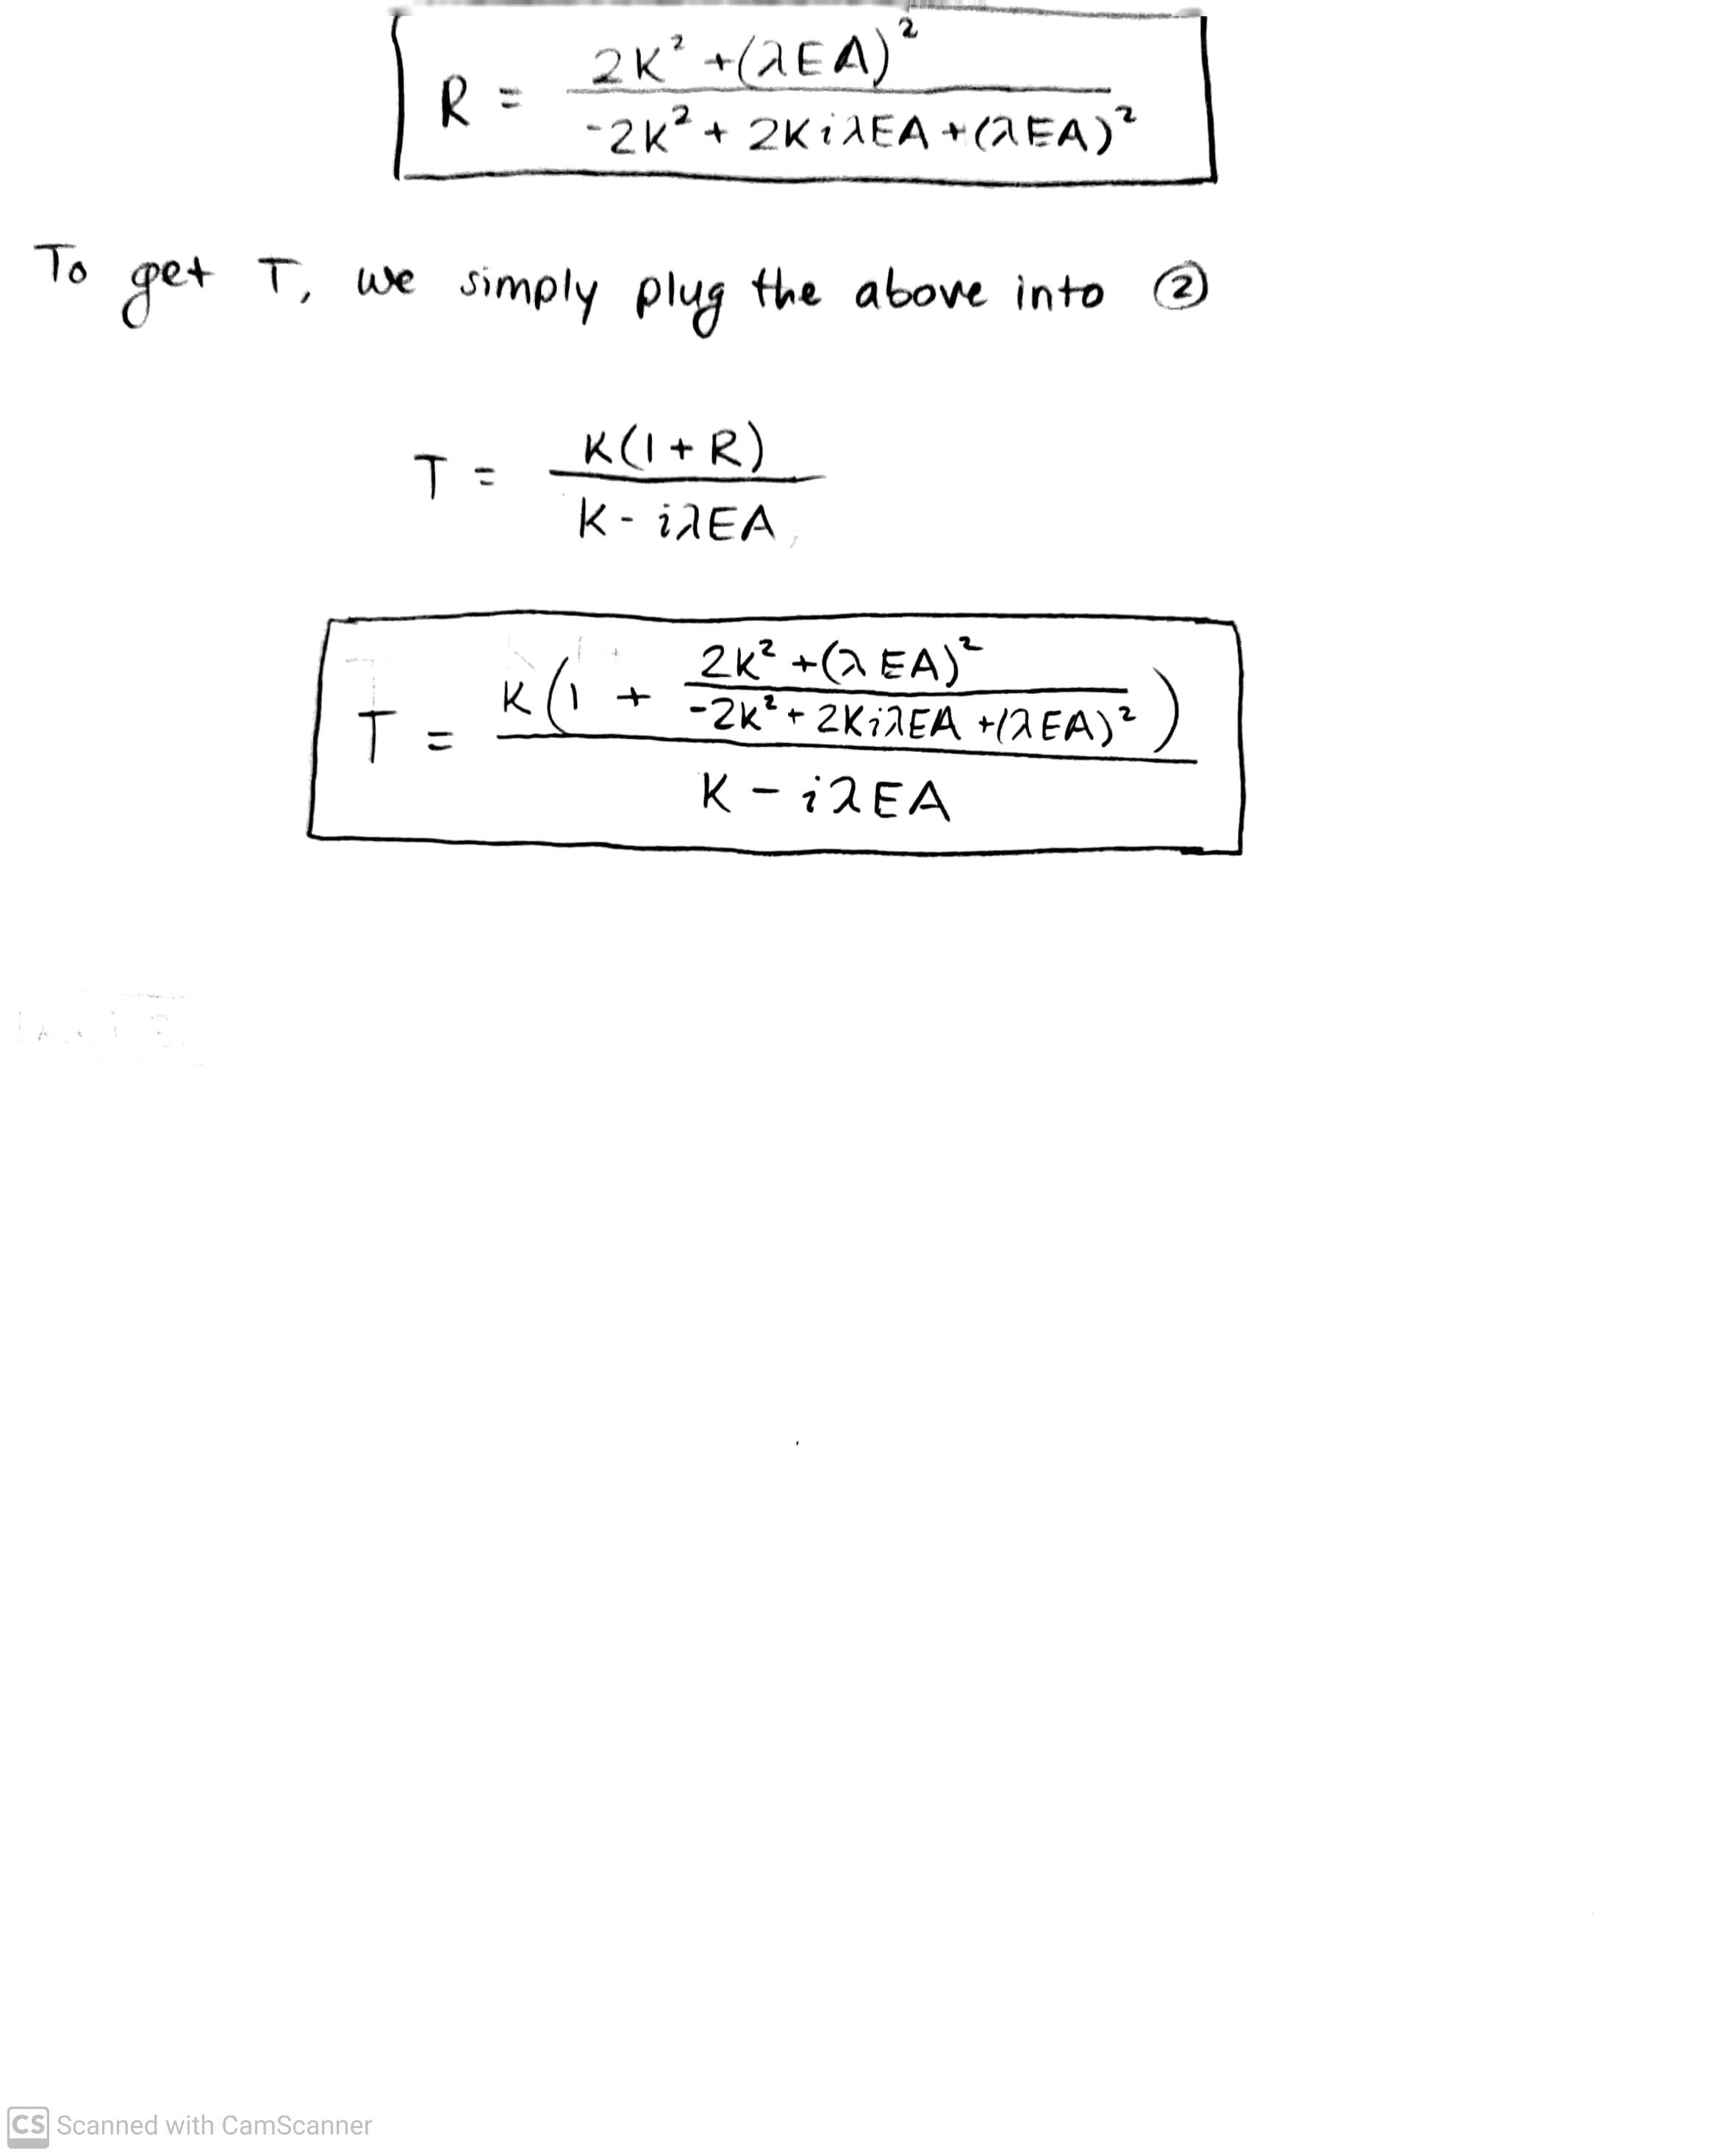 R = \frac{2K² + (λEA)²}{-2K² + 2KiλEA + (λEA)²}
To get T, we simply plug the above into ②
T = \frac{K(1+R)}{K - iλEA}
T = \frac{K(1 + \frac{2K² + (λEA)²}{-2K² + 2KiλEA + (λEA)²})}{K - iλEA}
CS Scanned with CamScanner